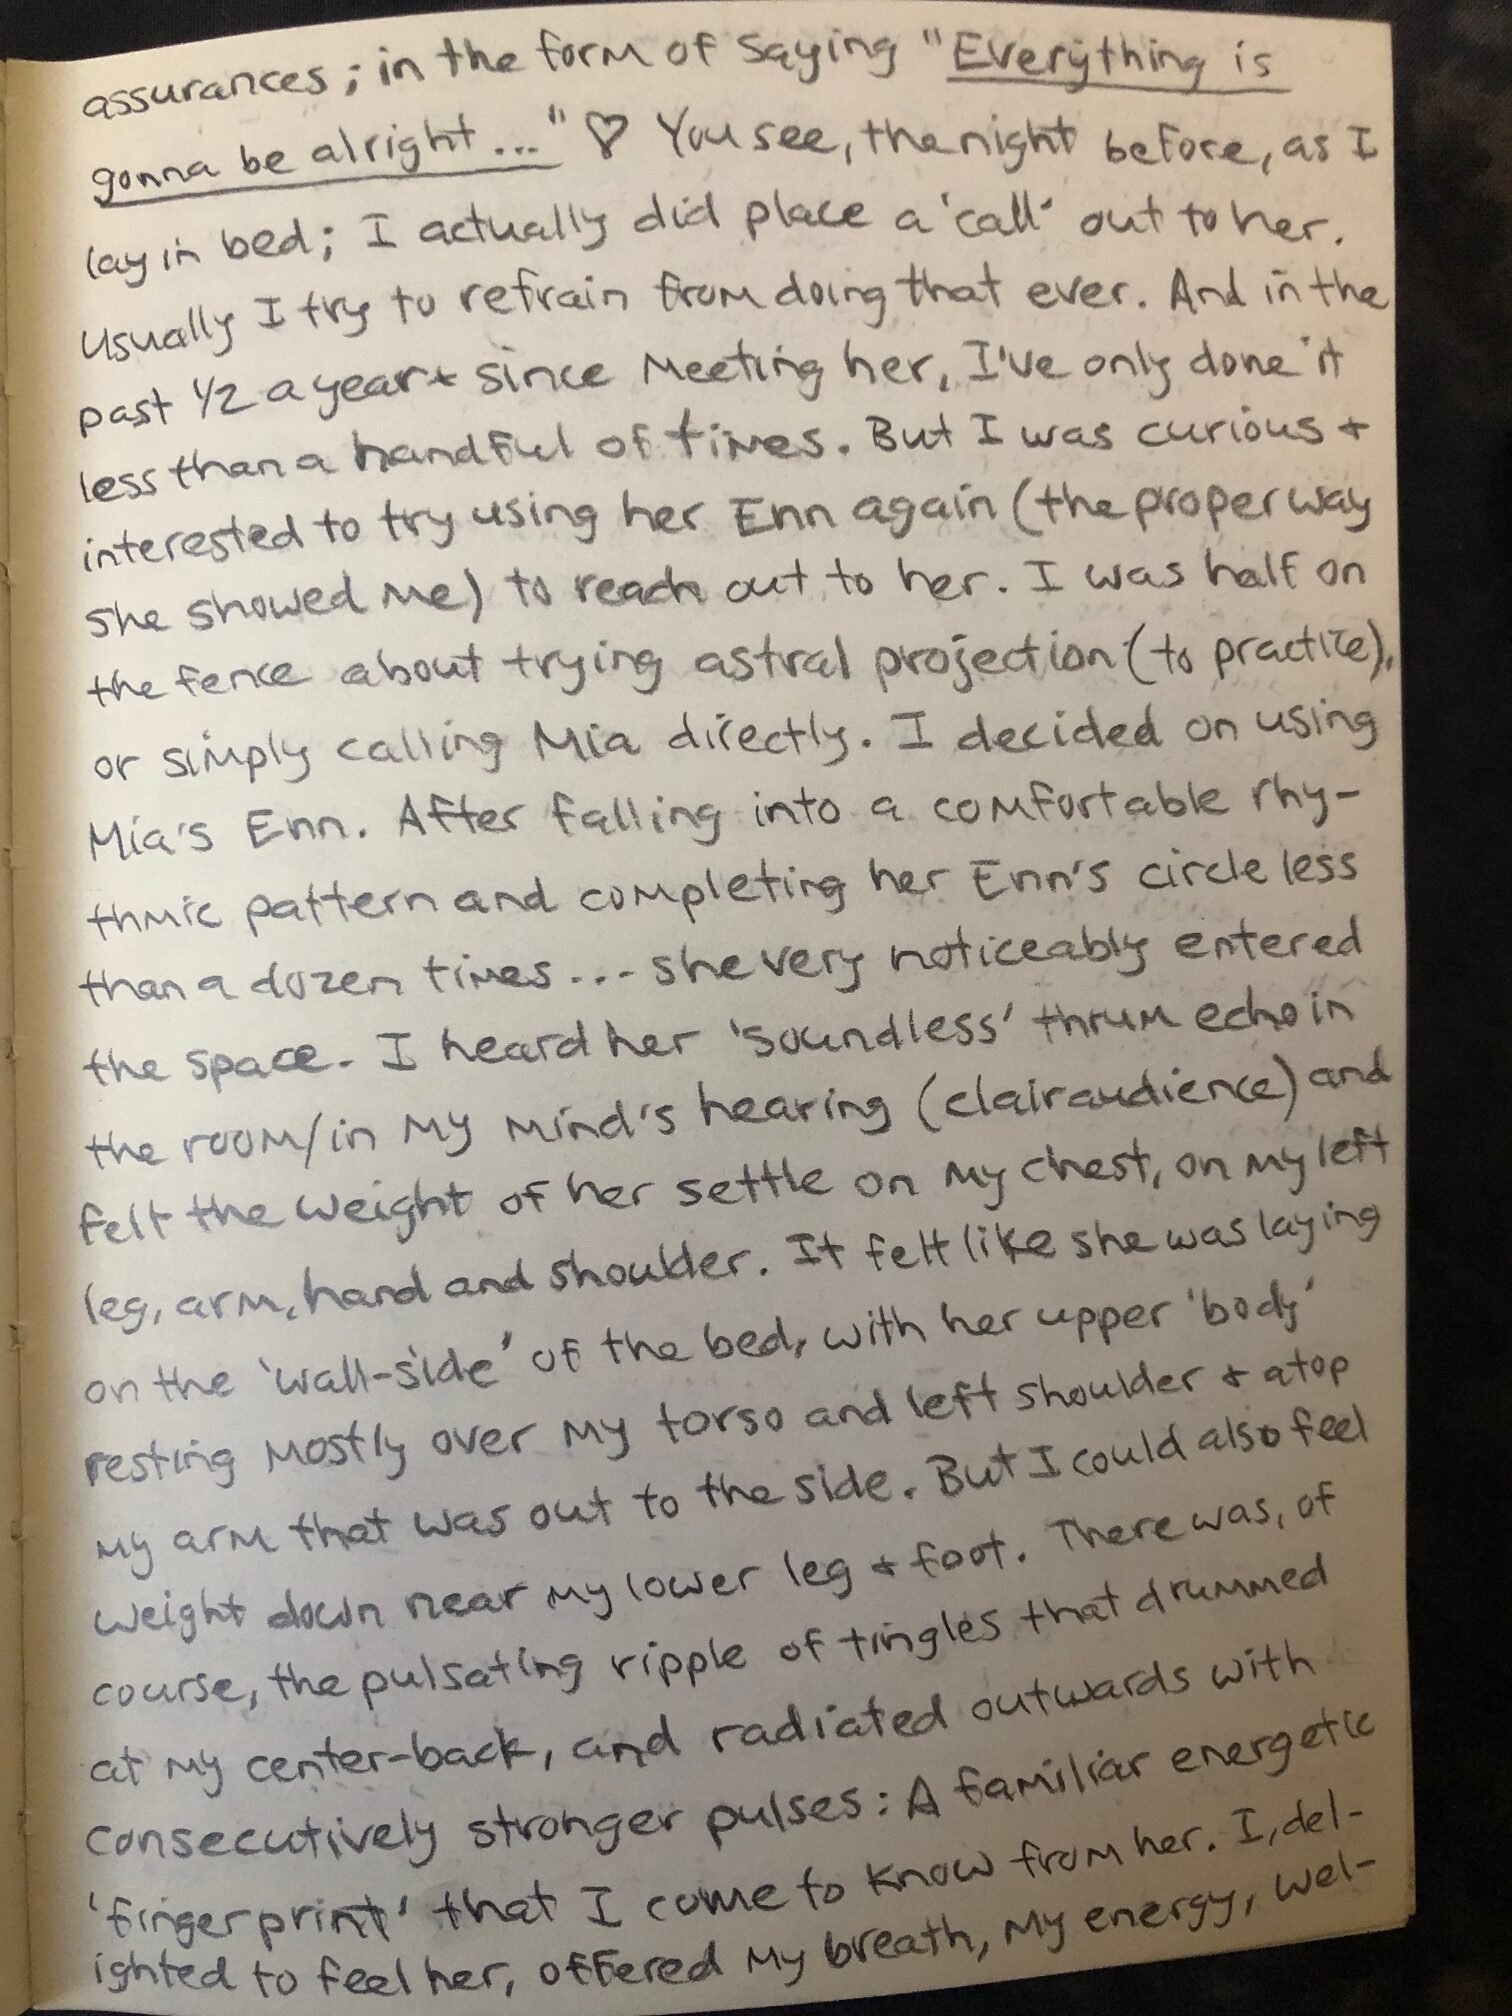 assurances; in the form of saying "Everything is
gonna be alright..." ♡ You see, the night before, as I
lay in bed; I actually did place a 'call' out to her.
Usually I try to refrain from doing that ever. And in the
past 1/2 a year + since meeting her, I've only done it
less than a handful of times. But I was curious +
interested to try using her Enn again (the proper way
she showed me) to reach out to her. I was half on
the fence about trying astral projection (to practice),
or simply calling Mia directly. I decided on using
Mia's Enn. After falling into a comfortable rhy-
thmic pattern and completing her Enn's circle less
than a dozen times... she very noticeably entered
the space. I heard her 'soundless' thrum echo in
the room/in my mind's hearing (clairaudience) and
felt the weight of her settle on my chest, on my left
leg, arm, hand and shoulder. It felt like she was laying
on the 'wall-side' of the bed, with her upper 'body'
resting mostly over my torso and left shoulder + atop
my arm that was out to the side. But I could also feel
weight down near my lower leg + foot. There was, of
course, the pulsating ripple of tingles that drummed
at my center-back, and radiated outwards with
consecutively stronger pulses: A familiar energetic
'fingerprint' that I come to know from her. I, del-
ighted to feel her, offered my breath, my energy, wel-